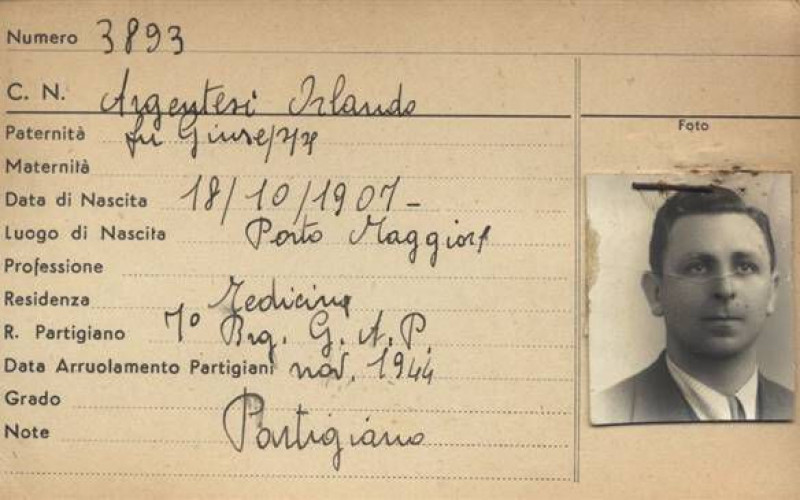 Numero 3893
C. N. Argentesi Orlando
Paternità fu Giuseppe
Maternità
Data di Nascita 18/10/1907 -
Luogo di Nascita Porto Maggiore
Foto
Professione
Residenza Medicina
R. Partigiano 7° Brg. G. A. P.
Data Arruolamento Partigiani nov. 1944
Grado
Note Partigiano